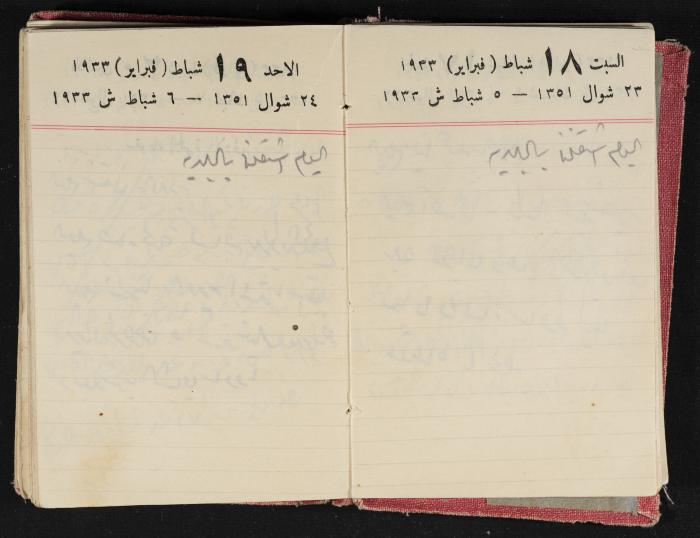 السبت ١٨ شباط (فبراير) ١٩٣٣
٢٣ شوال ١٣٥١ — ٥ شباط ش ١٩٣٣
اليوم اشتغلنا بالبلديه
الاحد ١٩ شباط (فبراير) ١٩٣٣
٢٤ شوال ١٣٥١ — ٦ شباط ش ١٩٣٣
اليوم اشتغلنا بالبلديه